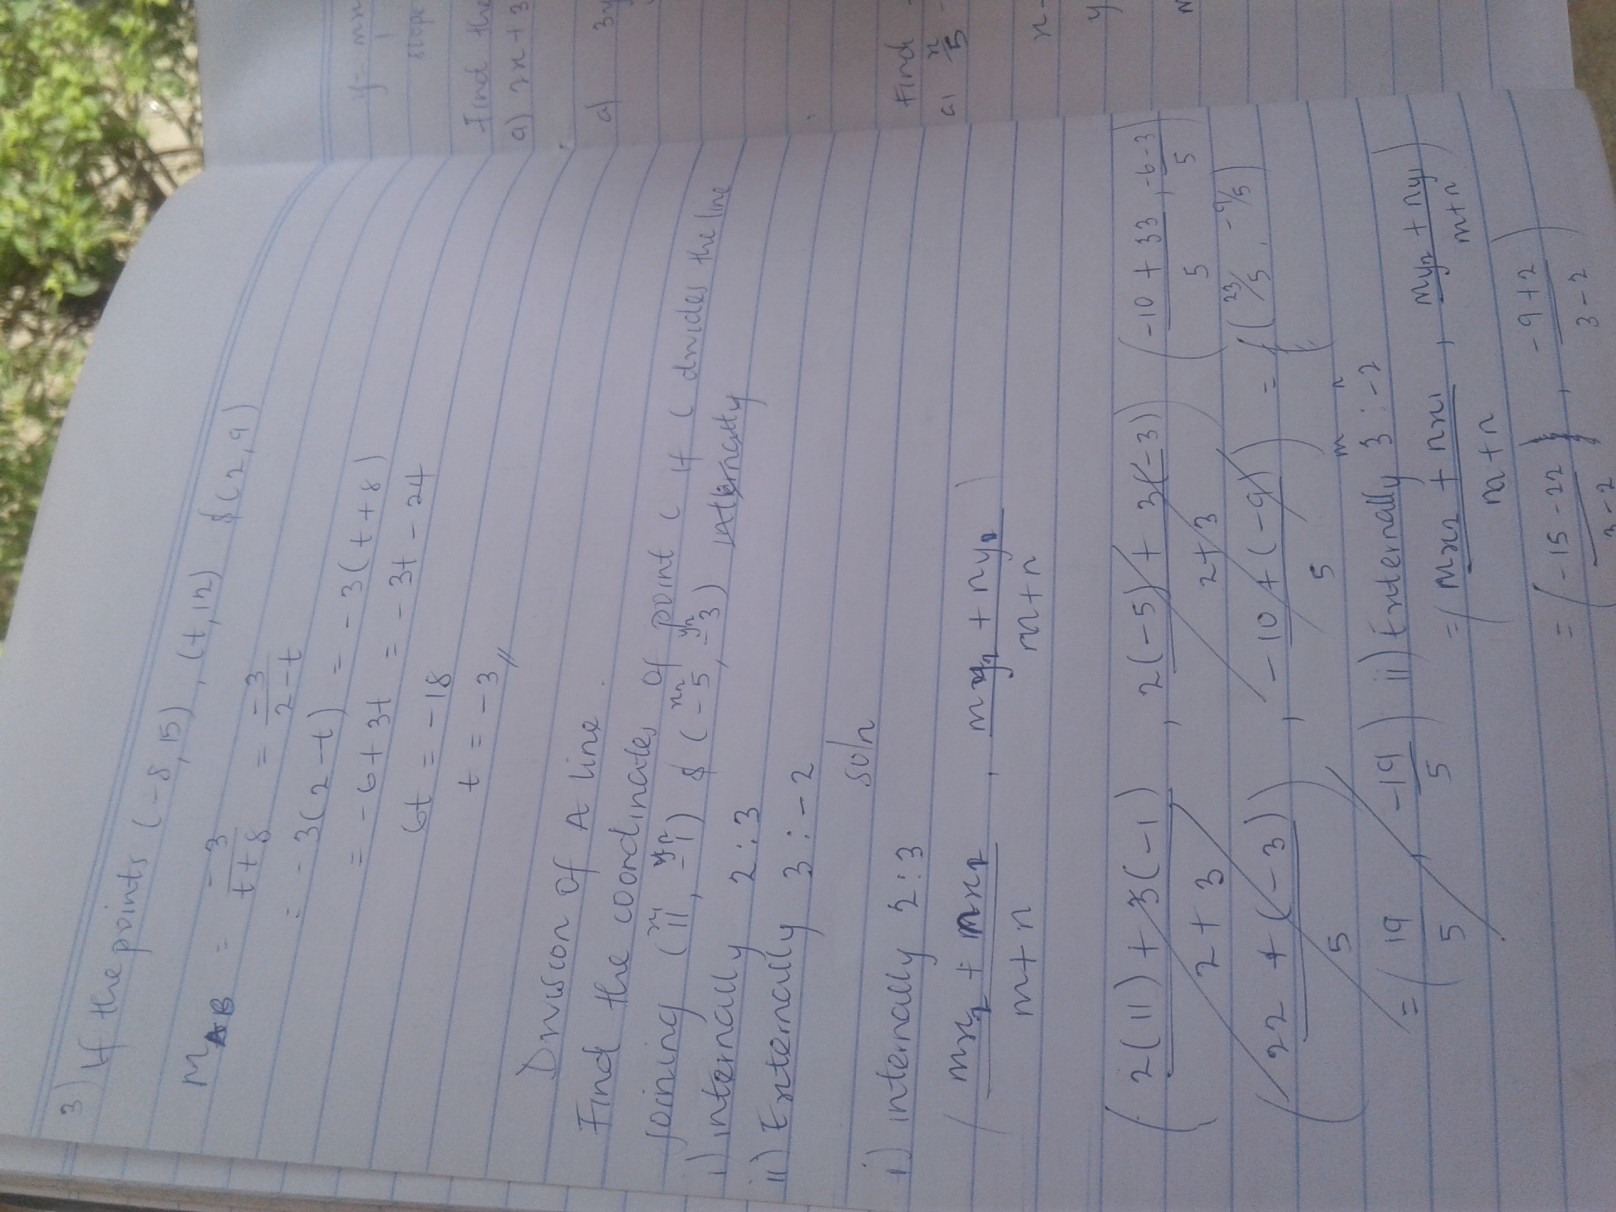 3) If the points (-8,15), (t,12) & (2,9)
M_AB = -3/(t+8) = -3/(2-t)
= -3(2-t) = -3(t+8)
= -6+3t = -3t-24
6t = -18
t = -3 //
Division of A line
Find the coordinates of point C if C divides the line
x1 y1 x2 y2
joining (11, -1) & (-5, -3) internally
i) internally 2:3
ii) Externally 3:-2
soln
i) internally 2:3
(mx2 + nx1 / m+n , my2 + ny1 / m+n)
(2(11) + 3(-1) / 2+3 , 2(-5) + 3(-3) / 2+3) (-10+33 / 5 , -6-3 / 5)
(22 + (-3) / 5 , -10 + (-9) / 5) = (23/5, -9/5)
= (19/5 , -19/5) ii) Externally 3:-2
m n
= (mx2 + nx1 / m+n , my2 + ny1 / m+n)
= (-15-22 / 3-2 , -9+2 / 3-2)
y = mx
slope
Find the
a) 2x + 3
a) 3y
Find
a) x/5
x -
y